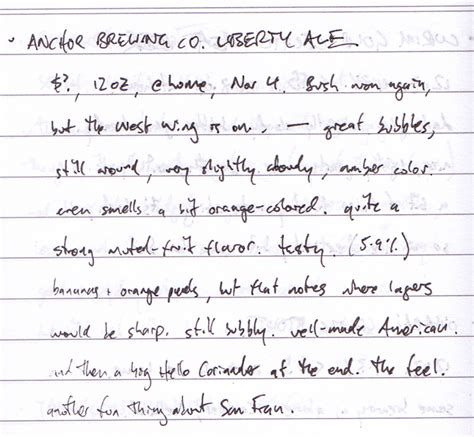 · ANCHOR BREWING CO. LIBERTY ALE
$?, 12oz, @home, Nov 4. Bush won again,
but the West Wing is on. — great bubbles,
still around, very slightly cloudy, amber color.
even smells a bit orange-colored. quite a
strong muted-fruit flavor. tasty. (5.9%)
bananas + orange peels, but flat notes where lagers
would be sharp. still bubbly. well-made American.
and then a Hello Coriander at the end. the feel.
another fun thing about San Fran.